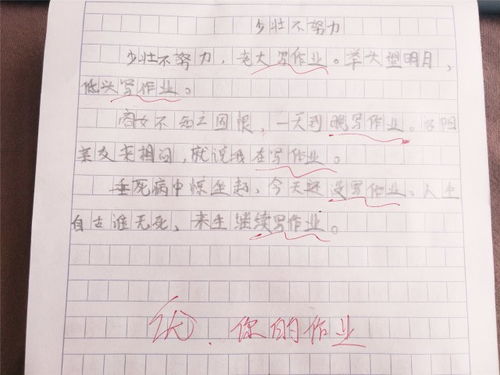 少壮不努力
少壮不努力，老大写作业。举头望明月，
低头写作业。
商女不知亡国恨，一天到晚写作业。洛阳
亲友若相问，就说我在写作业。
垂死病中惊坐起，今天还没写作业，人生
自古谁无死，来生继续写作业。
优．你的作业